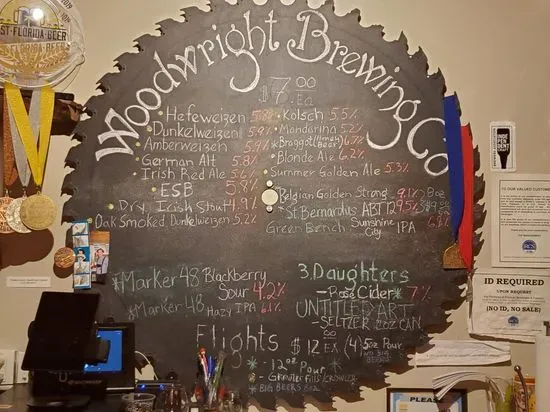 Woodwright Brewing Co
$7.00
Ea
Hefeweizen
Dunkelweizen 5.9%
Amberweizen 5.9%
German Alt 5.8%
Irish Red Ale 5.6%
ESB 5.8%
Dry Irish Stout 4.9%
Oak Smoked Dunkelweizen 5.2%
Kolsch 5.5%
Mandarina 5.2%
Braggot
Blonde Ale 6.2%
Summer Golden Ale 5.3%
Belgian Golden Strong 9.1% 8oz
St. Bernardus ABT 12 9.5%
Green Bench Sunshine City IPA
*Marker 48 Blackberry
Sour 4.2%
*Marker 48 Hazy IPA 6.1%
3 Daughters
- Rosé Cider* 7%
UNTITLED ART
- SELTZER 12OZ CAN
Flights $12 EA (4) 5oz Pour
NO BIG BEERS
* - 12oz Pour
* - Growler Fills/Crowler
* BIG BEERS 8oz
ST FLORIDA BEER
INDEPENDENT
TO OUR VALUED CUSTOMERS
RCS
ID REQUIRED
UPON REQUEST
(NO ID, NO SALE)
PLEASE